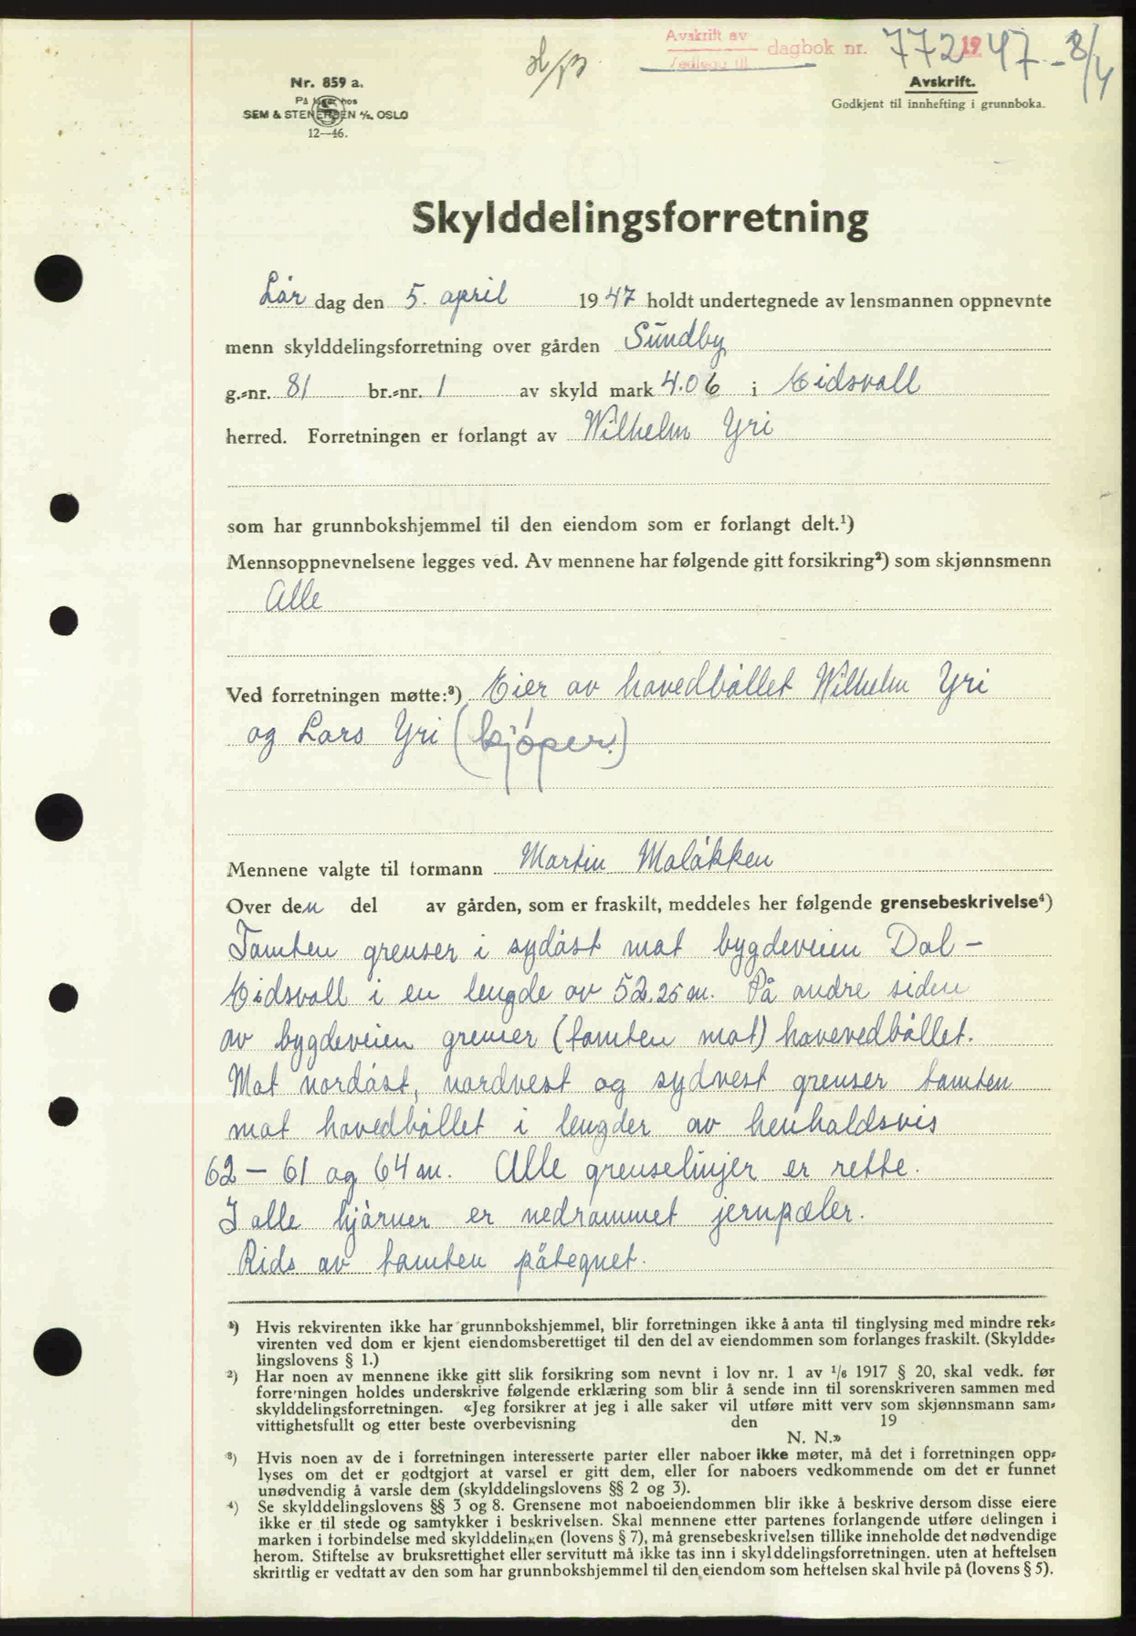 Avskrift av
Vedlegg til
dagbok nr. 772 1947 - 8/4
Nr. 859 a.
På lager hos
SEM & STENERSEN A/S, OSLO
12—46.
Avskrift.
Godkjent til innhefting i grunnboka.
Skylddelingsforretning
Lør dag den 5. april 1947 holdt undertegnede av lensmannen oppnevnte
menn skylddelingsforretning over gården Sundby
g.-nr. 81 br.-nr. 1 av skyld mark 4.06 i Eidsvoll
herred. Forretningen er forlangt av Wilhelm Yri
som har grunnbokshjemmel til den eiendom som er forlangt delt.¹)
Mennsoppnevnelsene legges ved. Av mennene har følgende gitt forsikring²) som skjønnsmenn
Alle
Ved forretningen møtte:³) Eier av hovedbøllet Wilhelm Yri
og Lars Yri (kjøper.)
Mennene valgte til formann Martin Moløkken
Over den del av gården, som er fraskilt, meddeles her følgende grensebeskrivelse⁴)
Tomten grenser i sydøst mot bygdeveien Dal -
Eidsvoll i en lengde av 52.25 m. På andre siden
av bygdeveien grenser (tomten mot) hovevedbøllet.
Mot nordøst, nordvest og sydvest grenser tomten
mot hovedbøllet i lengder av henholdsvis
62 - 61 og 64 m. Alle grenselinjer er rette.
I alle hjørner er nedrammet jernpæler.
Rids av tomten påtegnet.
¹) Hvis rekvirenten ikke har grunnbokshjemmel, blir forretningen ikke å anta til tinglysing med mindre rek-
virenten ved dom er kjent eiendomsberettiget til den del av eiendommen som forlanges fraskilt. (Skyldde-
lingslovens § 1.)
²) Har noen av mennene ikke gitt slik forsikring som nevnt i lov nr. 1 av 1/6 1917 § 20, skal vedk. før
forretningen holdes underskrive følgende erklæring som blir å sende inn til sorenskriveren sammen med
skylddelingsforretningen. «Jeg forsikrer at jeg i alle saker vil utføre mitt verv som skjønnsmann sam-
vittighetsfullt og etter beste overbevisning den 19
N. N.»
³) Hvis noen av de i forretningen interesserte parter eller naboer ikke møter, må det i forretningen opp-
lyses om det er godtgjort at varsel er gitt dem, eller for naboers vedkommende om det er funnet
unødvendig å varsle dem (skylddelingslovens §§ 2 og 3).
⁴) Se skylddelingslovens §§ 3 og 8. Grensene mot naboeiendommen blir ikke å beskrive dersom disse eiere
ikke er til stede og samtykker i beskrivelsen. Skal mennene etter partenes forlangende utføre delingen i
marken i forbindelse med skylddelingen (lovens § 7), må grensebeskrivelsen tillike inneholde det nødvendige
herom. Stiftelse av bruksrettighet eller servitutt må ikke tas inn i skylddelingsforretningen, uten at heftelsen
skriftlig er vedtatt av den som har grunnbokshjemmel til den eiendom som heftelsen skal hvile på (lovens § 5).